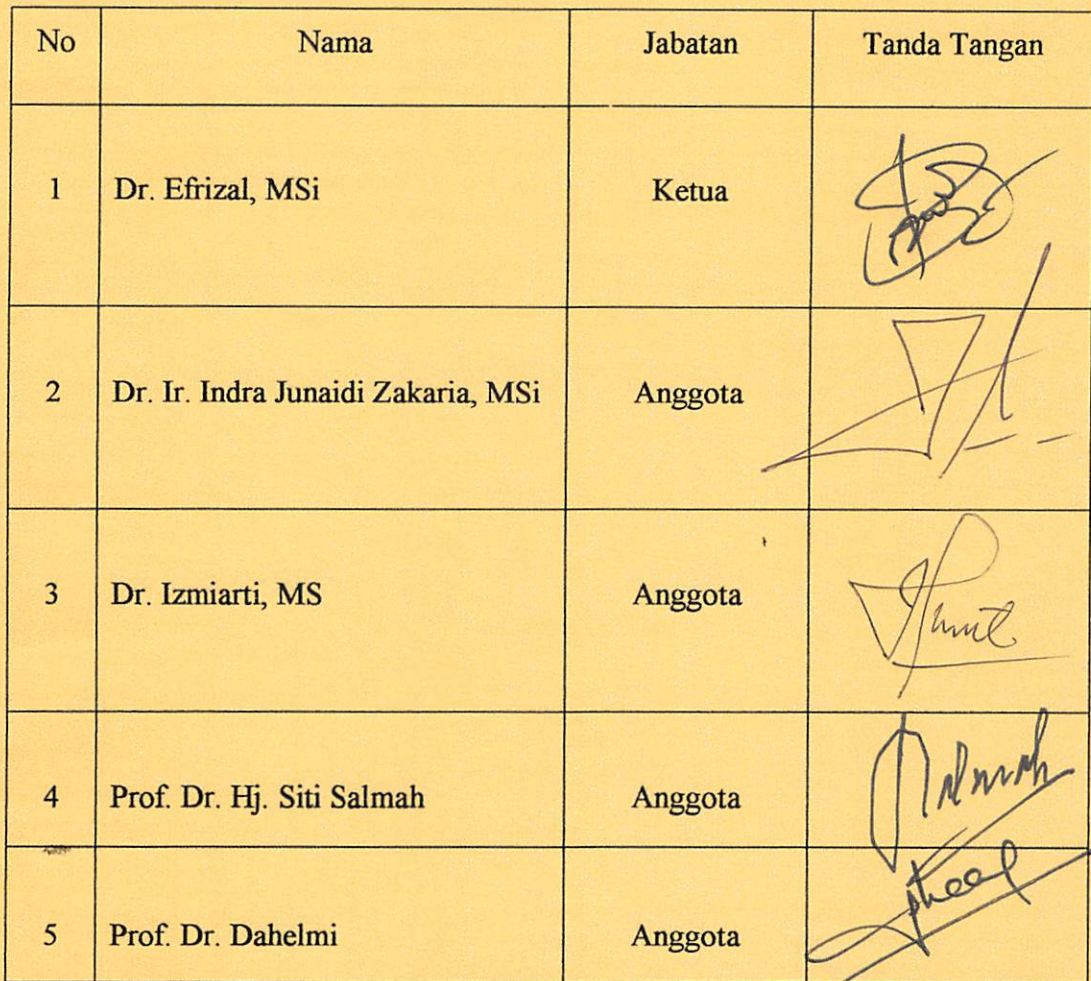 No Nama Jabatan Tanda Tangan
1 Dr. Efrizal, MSi Ketua
2 Dr. Ir. Indra Junaidi Zakaria, MSi Anggota
3 Dr. Izmiarti, MS Anggota
4 Prof. Dr. Hj. Siti Salmah Anggota
5 Prof. Dr. Dahelmi Anggota